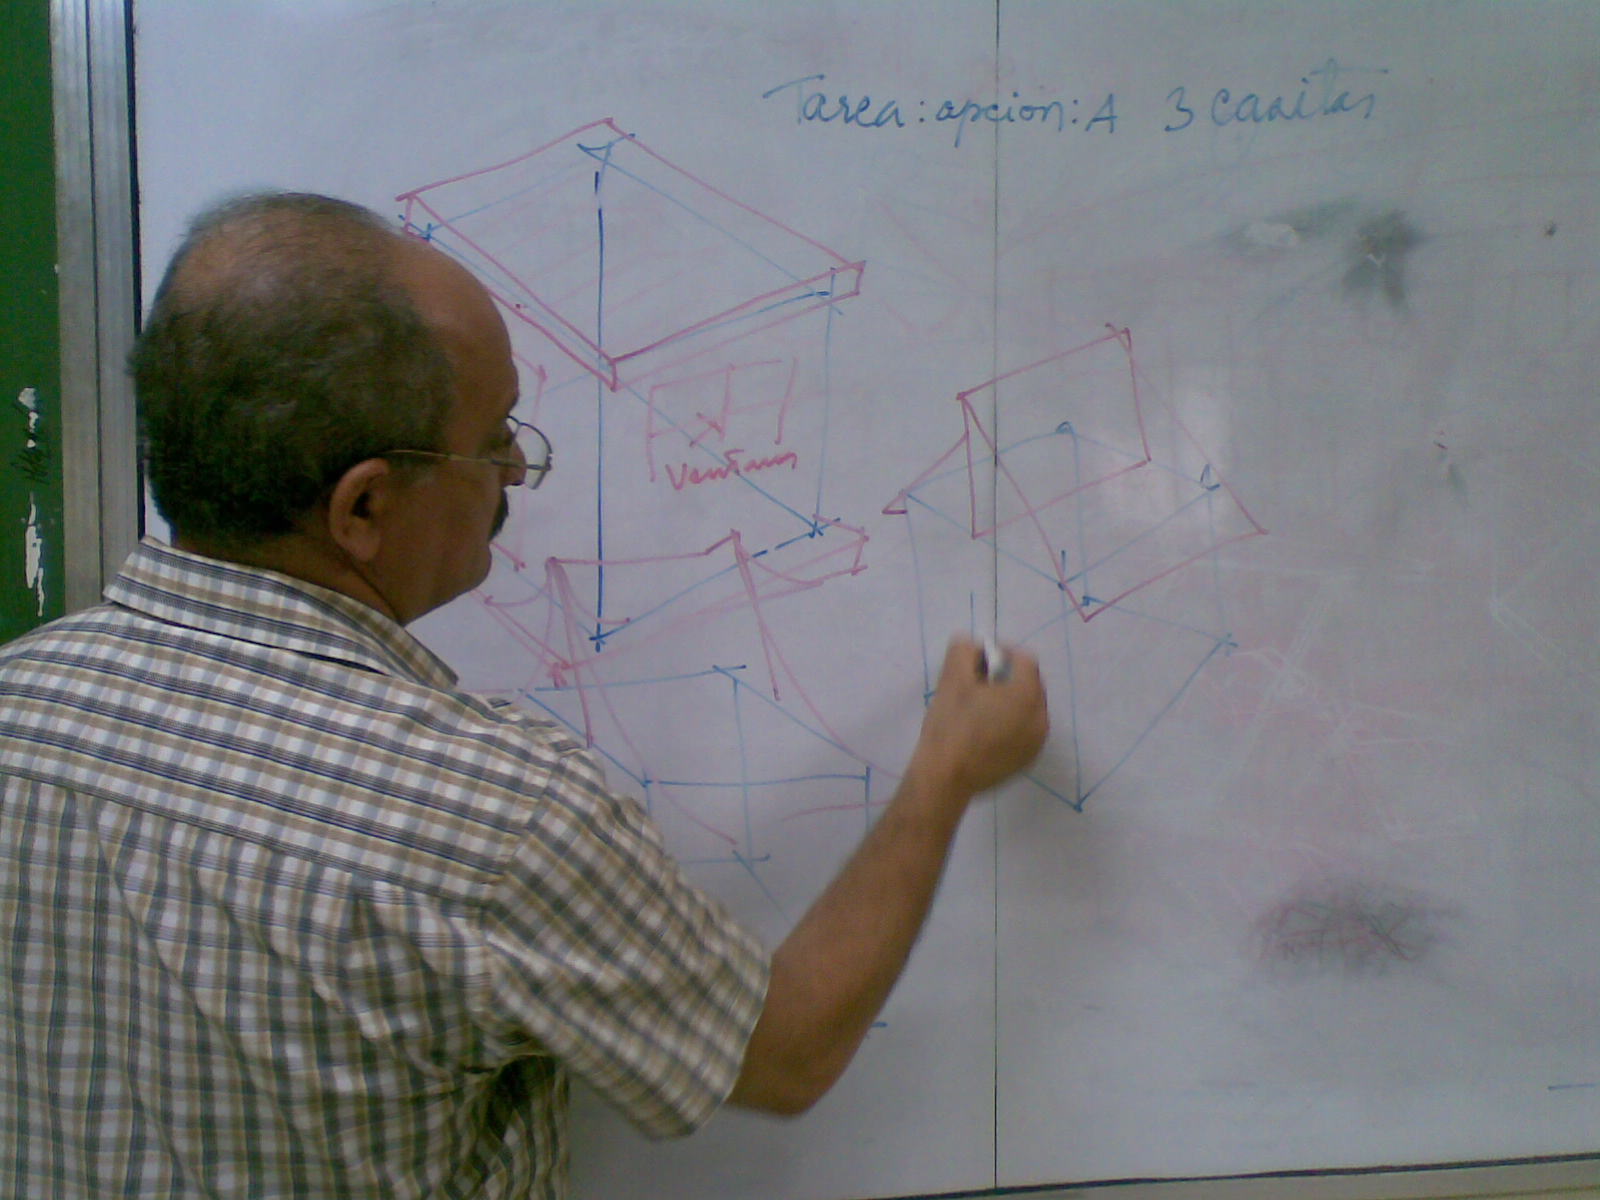 Tarea: opcion: A 3 casitas
Ventana